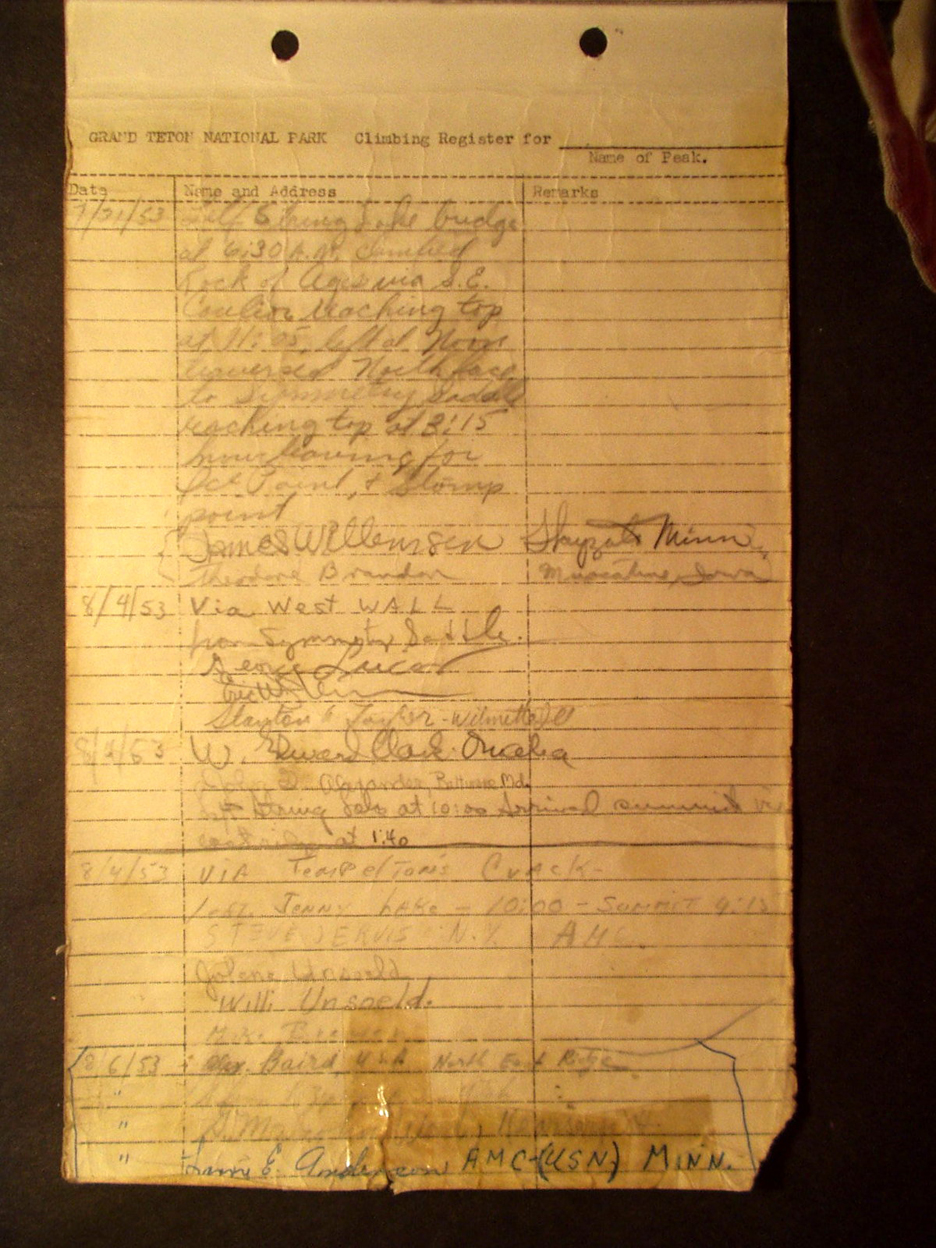 GRAND TETON NATIONAL PARK Climbing Register for
Name of Peak.
Date Name and Address Remarks
7/21/53 Left String Lake bridge
at 6:30 A.M. climbed
Rock of Ages via S.E.
Couloir reaching top
at 11:05, left at Noon
traversed North face
to Symmetry Saddle
reaching top at 3:15
now leaving for
Ice Point, & Storm
point
James Willemssen Minn
Theodore Brandon Muscatine, Iowa
8/4/53 Via West WALL
from Symmetry Saddle.
George Lucas
Wilmette Ill
53 W. Edward Clark Omaha
John D. Alexander, Baltimore Md.
Left String Lake at 10:00 Arrival summit via
at 1:40
8/4/53 VIA TEMPELTON'S CRACK-
JENNY LAKE - 10:00 - SUMMIT 4:15
STEVE JERVIS N.Y. AMC.
Jolene Unsoeld
Willi Unsoeld.
Mike Brewer
8/6/53 Alex. Baird, USA North East Ridge
"
"
" E. Anderson AMC-(USN) MINN.